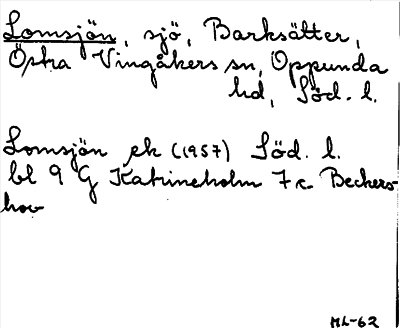 Lomsjön, sjö, Barksätter,
Östra Vingåkers sn, Oppunda
hd, Söd. l.
Lomsjön ek (1957) Söd. l.
bl 9 G Katrineholm 7 c Beckers-
hov
ML-62